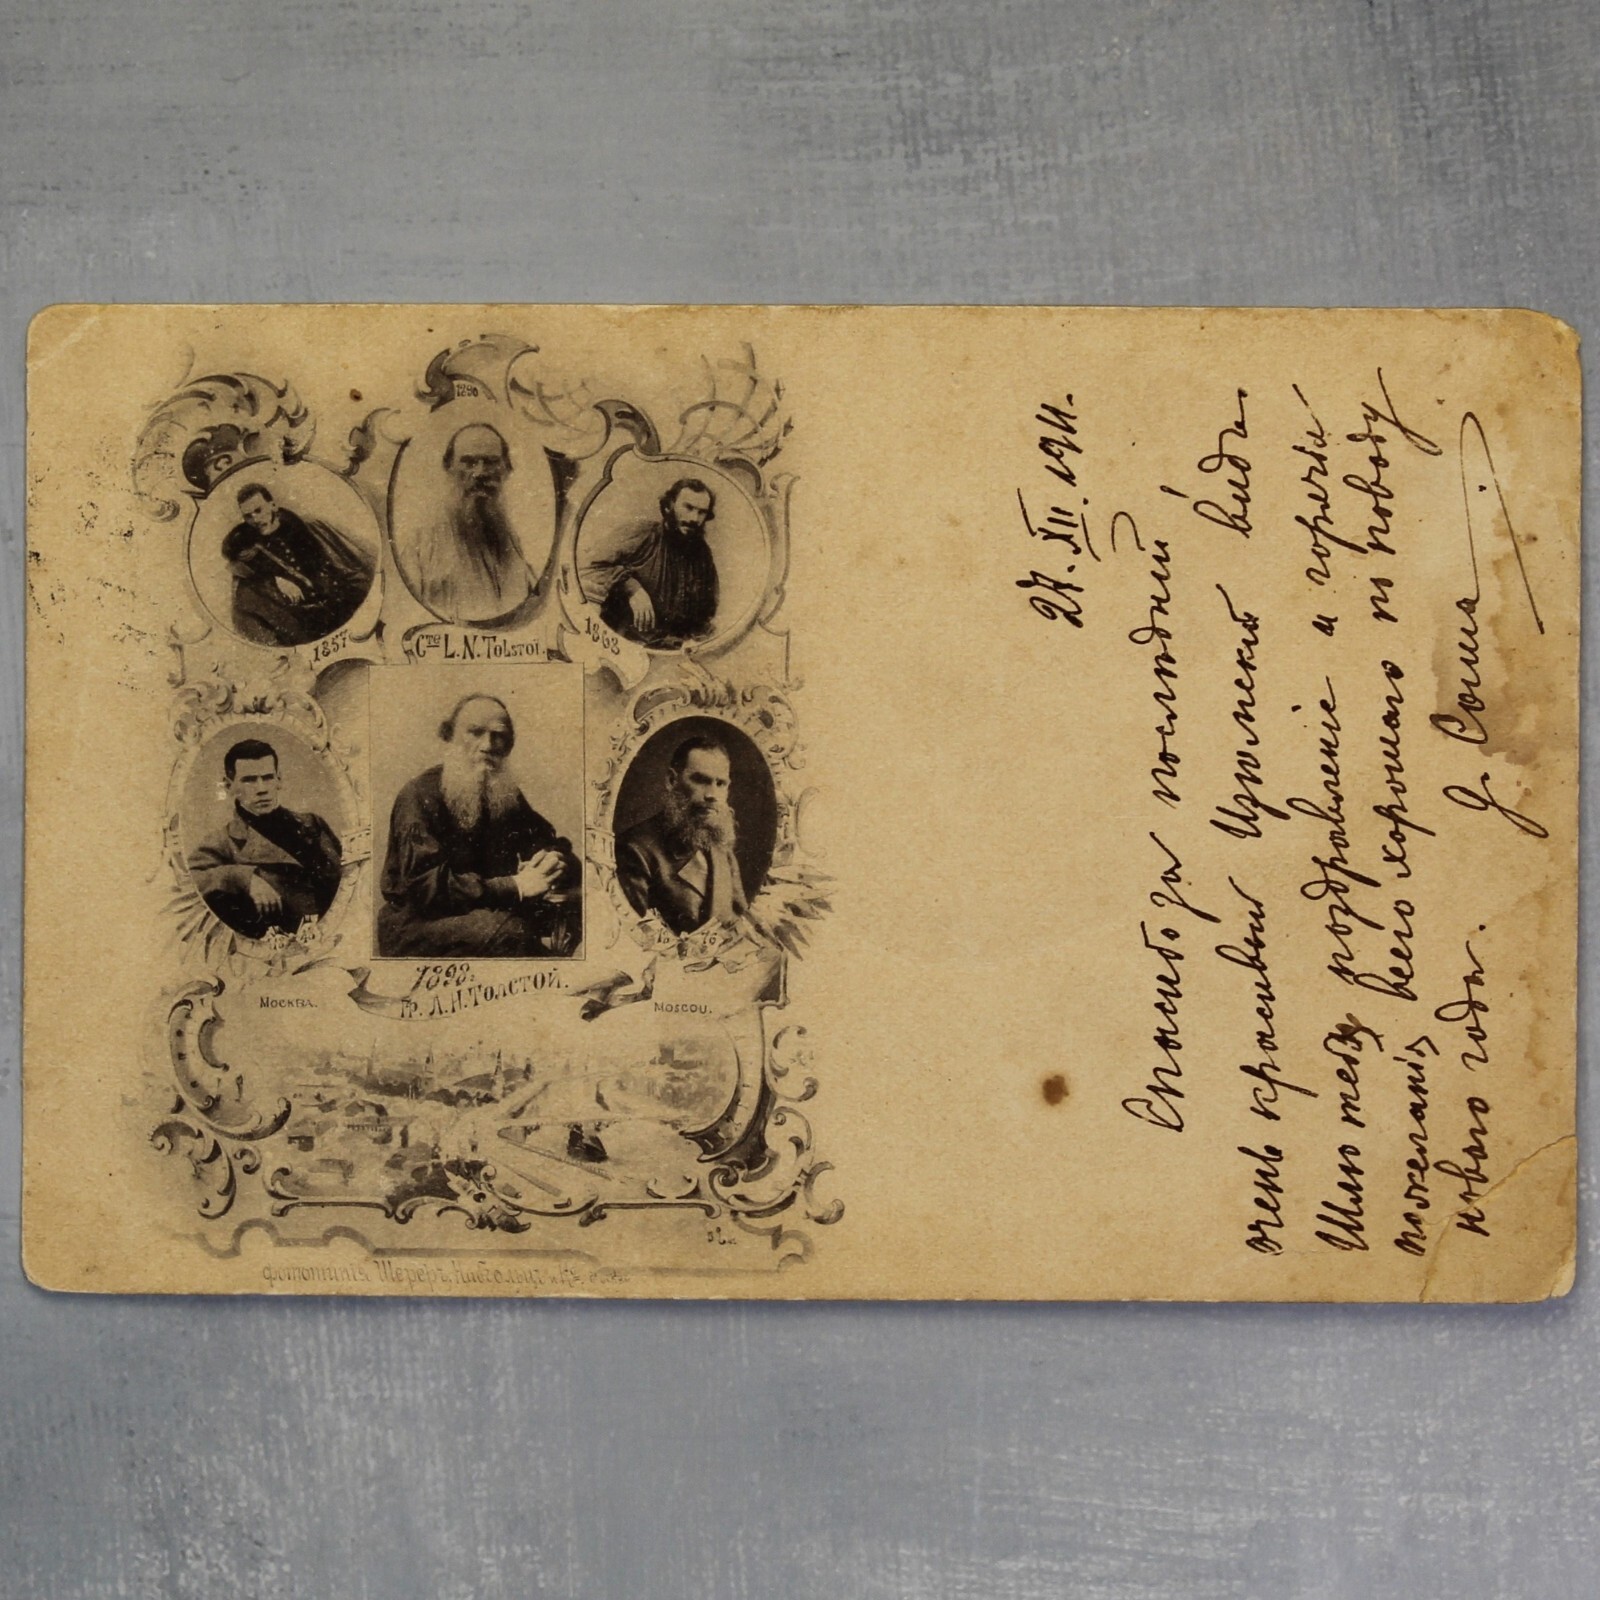 1890
1857
Cte L. N. Tolstoï.
1863
18 48
18 76
1898.
Гр. Л. Н. Толстой.
Москва.
Moscou.
Фототипія Шереръ, Набгольцъ и Ко.
27. XII. 1911.
Спасибо за послѣдній
очень красивый Цюрихскій видъ.
Шлю тебѣ поздравленіе и горячія
пожеланія всего хорошаго по поводу
новаго года.